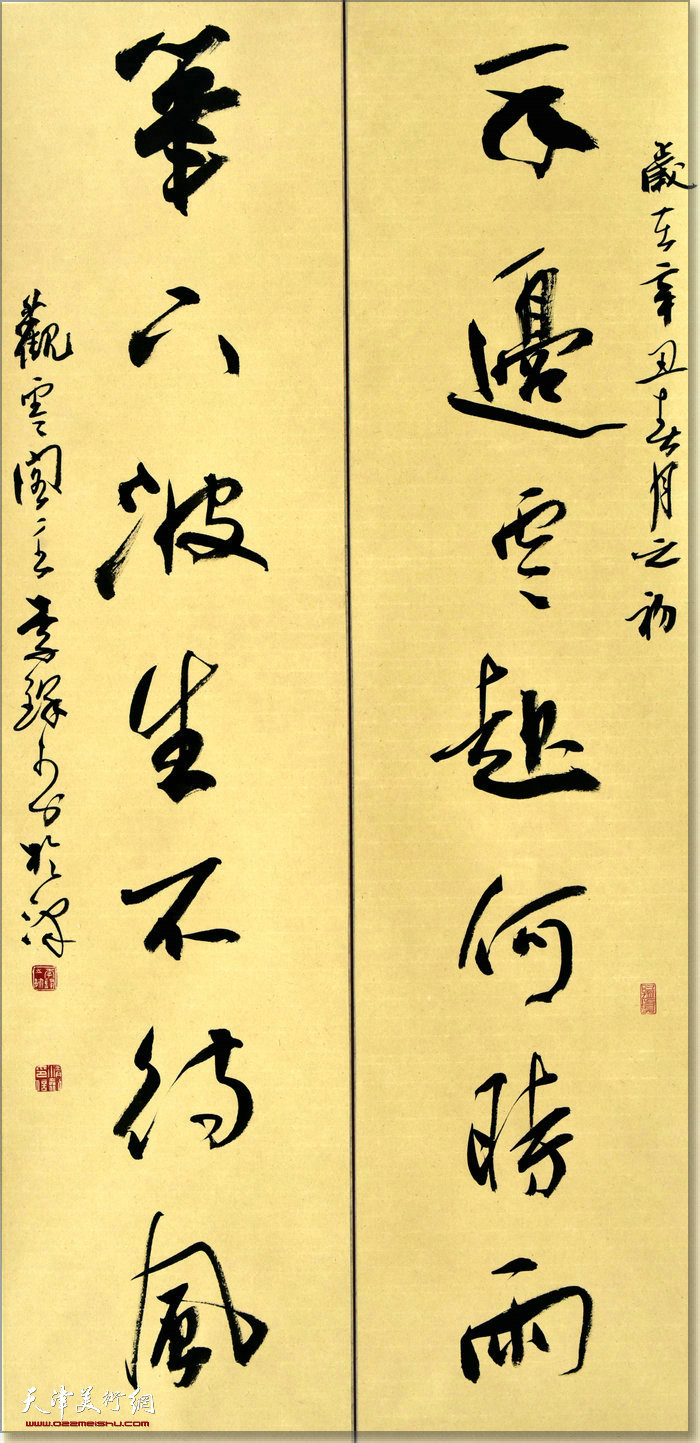 歲在辛丑春月之初
邊雲起何時雨
筆下波生不待風
觀雲閣主李 於津
天津美術網
www.022meishu.com